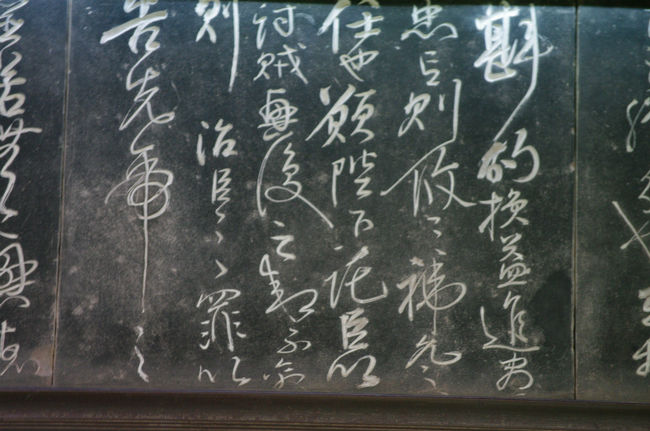 斟酌損益進盡
忠言則攸之禕允之
任也願陛下託臣以
討賊興復之效不效
則治臣之罪以
告先帝之
靈若無興德